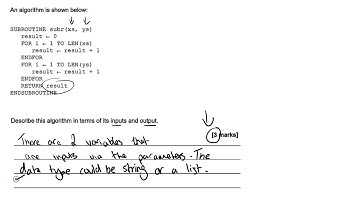 An algorithm is shown below:
SUBROUTINE subr(xs, ys)
result ← 0
FOR i ← 1 TO LEN(xs)
result ← result + 1
ENDFOR
FOR i ← 1 TO LEN(ys)
result ← result + 1
ENDFOR
RETURN result
ENDSUBROUTINE
Describe this algorithm in terms of its inputs and output.
[3 marks]
There are 2 variables that
are inputs via the parameters. The
data type could be string or a list.